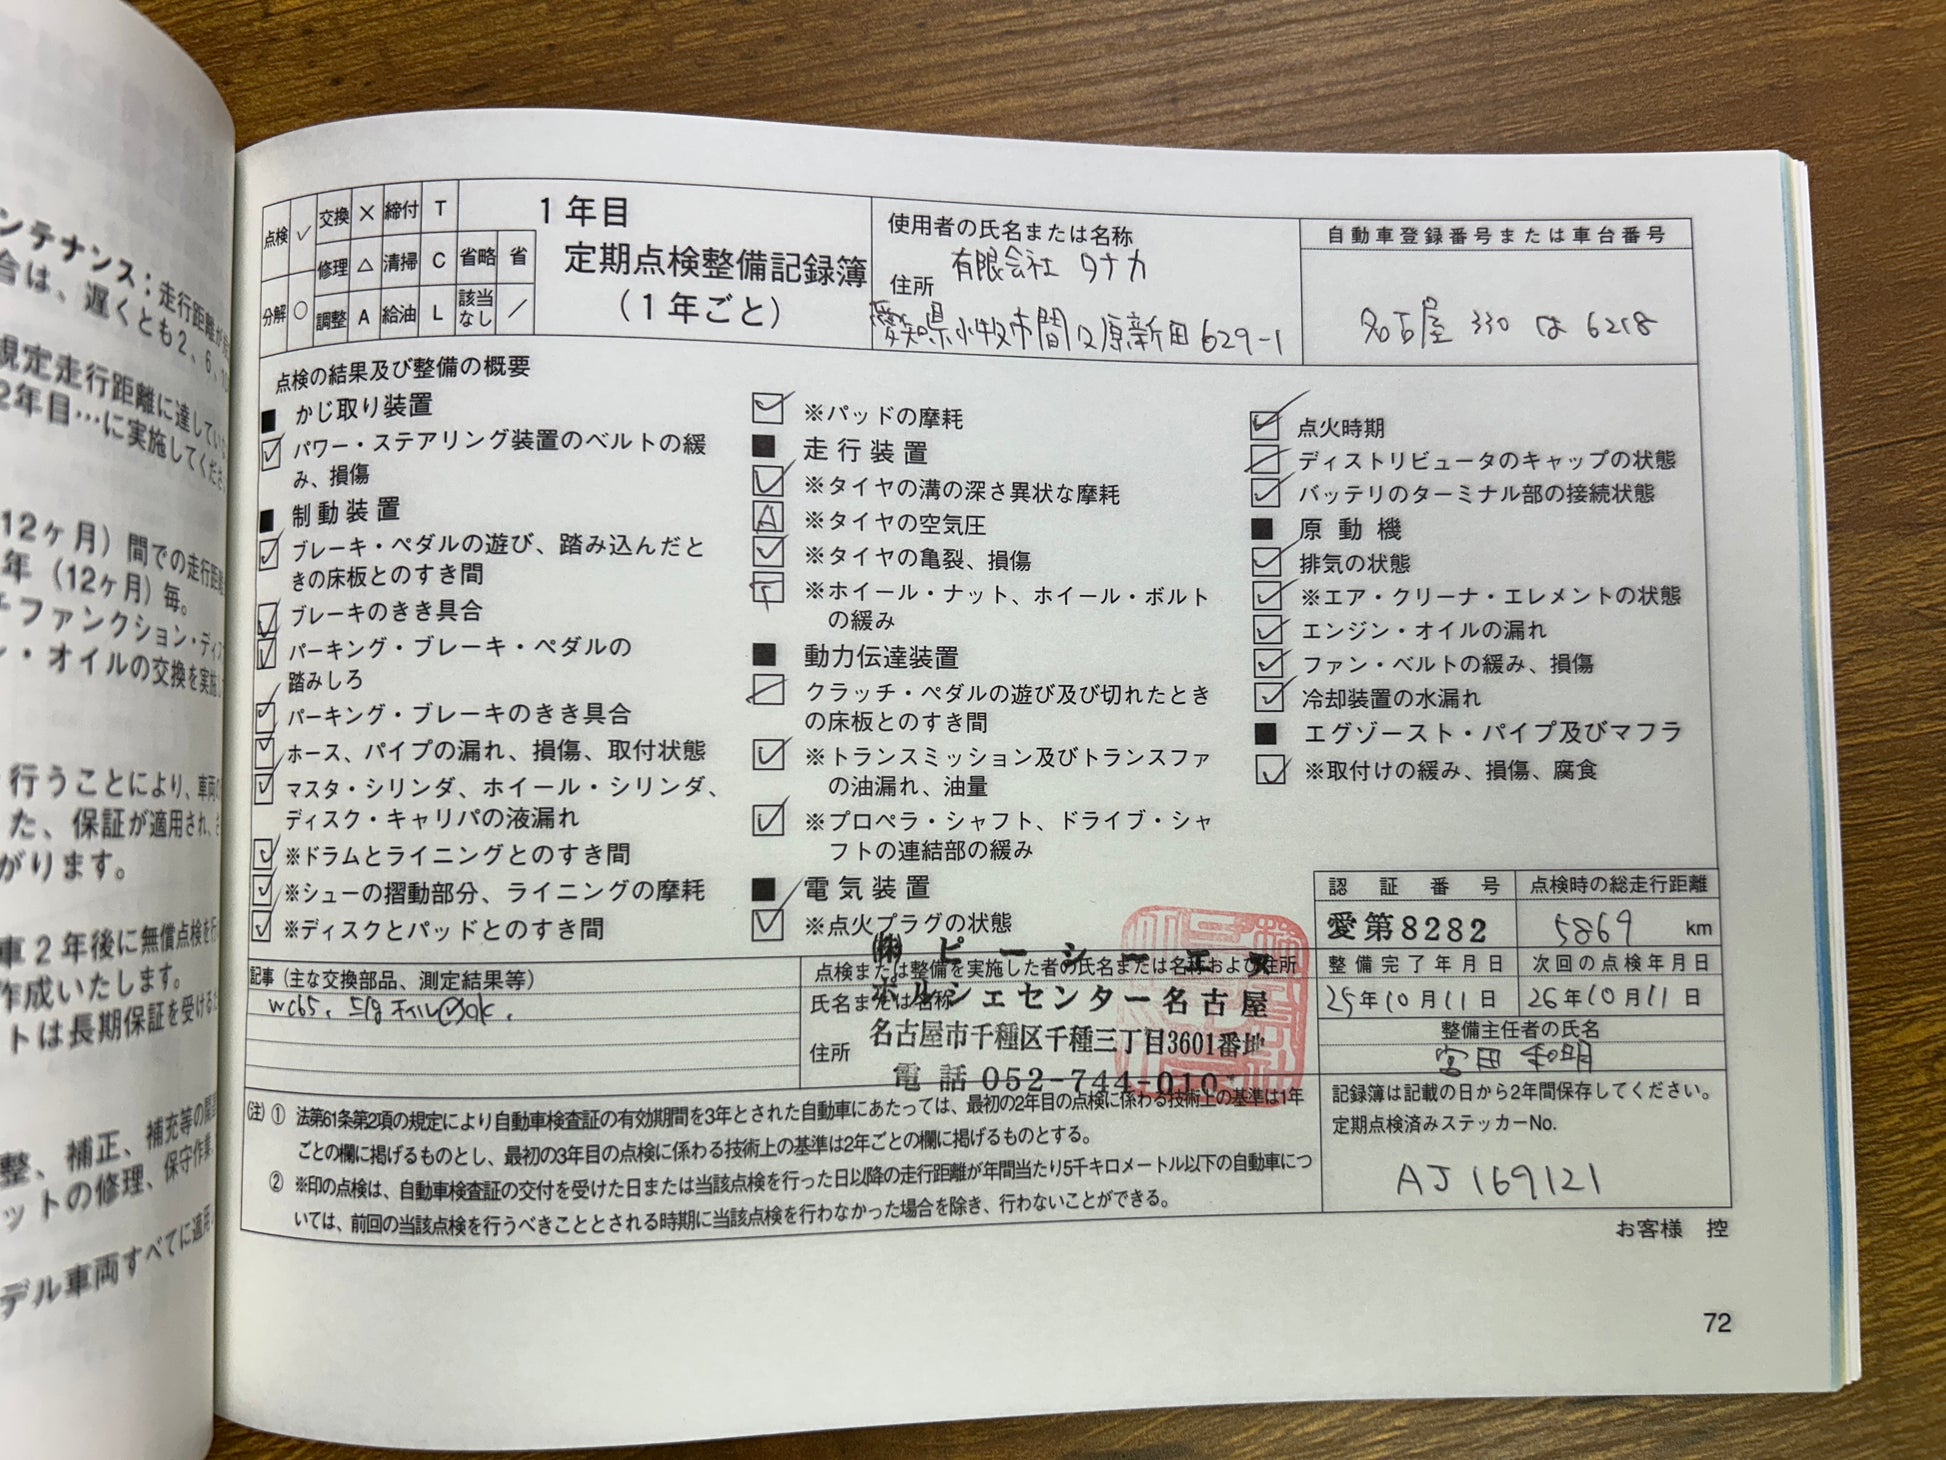 ンテナンス：走行距離が
合は、遅くとも2、6、10
規定走行距離に達してい
2年目…に実施してくださ
12ヶ月）間での走行距離
年（12ヶ月）毎。
チファンクション・ディス
ン・オイルの交換を実施
行うことにより、車両の
た、保証が適用され、さ
がります。
車2年後に無償点検を行
作成いたします。
トは長期保証を受けるた
整、補正、補充等の
ットの修理、保守作業
デル車両すべてに適用
点検 ✓ 交換 × 締付 T
修理 △ 清掃 C 省略 省
分解 ○ 調整 A 給油 L 該当なし ／
1年目
定期点検整備記録簿
（1年ごと）
使用者の氏名または名称
有限会社 タナカ
住所
愛知県小牧市間々原新田629-1
自動車登録番号または車台番号
名古屋 330 は 6218
点検の結果及び整備の概要
■ かじ取り装置
✓ パワー・ステアリング装置のベルトの緩
み、損傷
■ 制動装置
✓ ブレーキ・ペダルの遊び、踏み込んだと
きの床板とのすき間
✓ ブレーキのきき具合
✓ パーキング・ブレーキ・ペダルの
踏みしろ
✓ パーキング・ブレーキのきき具合
✓ ホース、パイプの漏れ、損傷、取付状態
✓ マスタ・シリンダ、ホイール・シリンダ、
ディスク・キャリパの液漏れ
✓ ※ドラムとライニングとのすき間
✓ ※シューの摺動部分、ライニングの摩耗
✓ ※ディスクとパッドとのすき間
✓ ※パッドの摩耗
■ 走行装置
✓ ※タイヤの溝の深さ異状な摩耗
A ※タイヤの空気圧
✓ ※タイヤの亀裂、損傷
T ※ホイール・ナット、ホイール・ボルト
の緩み
■ 動力伝達装置
／ クラッチ・ペダルの遊び及び切れたとき
の床板とのすき間
✓ ※トランスミッション及びトランスファ
の油漏れ、油量
✓ ※プロペラ・シャフト、ドライブ・シャ
フトの連結部の緩み
■ 電気装置
✓ ※点火プラグの状態
✓ 点火時期
／ ディストリビュータのキャップの状態
✓ バッテリのターミナル部の接続状態
■ 原動機
✓ 排気の状態
✓ ※エア・クリーナ・エレメントの状態
✓ エンジン・オイルの漏れ
✓ ファン・ベルトの緩み、損傷
✓ 冷却装置の水漏れ
■ エグゾースト・パイプ及びマフラ
✓ ※取付けの緩み、損傷、腐食
記事（主な交換部品、測定結果等）
点検または整備を実施した者の氏名または名称および住所
氏名または名称
㈱ピーシーエス
ポルシェセンター名古屋
住所
名古屋市千種区千種三丁目3601番地
電話 052-744-010
認証番号
愛第8282
点検時の総走行距離
5869 km
整備完了年月日
25年10月11日
次回の点検年月日
26年10月11日
整備主任者の氏名
和明
記録簿は記載の日から2年間保存してください。
定期点検済みステッカーNo.
AJ169121
(注) ① 法第61条第2項の規定により自動車検査証の有効期間を3年とされた自動車にあたっては、最初の2年目の点検に係わる技術上の基準は1年
ごとの欄に掲げるものとし、最初の3年目の点検に係わる技術上の基準は2年ごとの欄に掲げるものとする。
② ※印の点検は、自動車検査証の交付を受けた日または当該点検を行った日以降の走行距離が年間当たり5千キロメートル以下の自動車につ
いては、前回の当該点検を行うべきこととされる時期に当該点検を行わなかった場合を除き、行わないことができる。
お客様 控
72